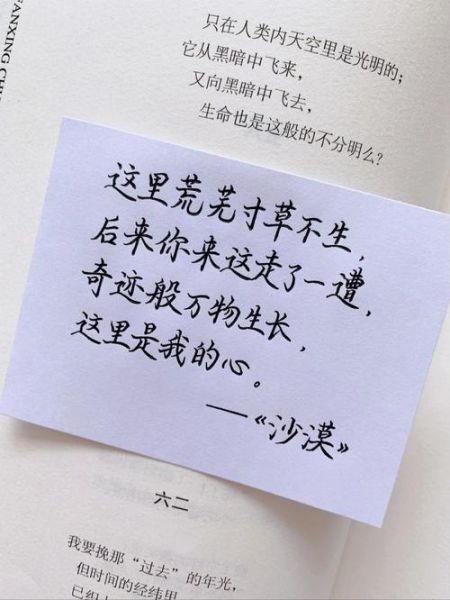 FANXING CHU
只在人类内天空里是光明的；
它从黑暗中飞来，
又向黑暗中飞去，
生命也是这般的不分明么？
这里荒芜寸草不生，
后来你来这走了一遭，
奇迹般万物生长，
这里是我的心。
——《沙漠》
六二
我要挽那“过去”的年光，
但时间的经纬里